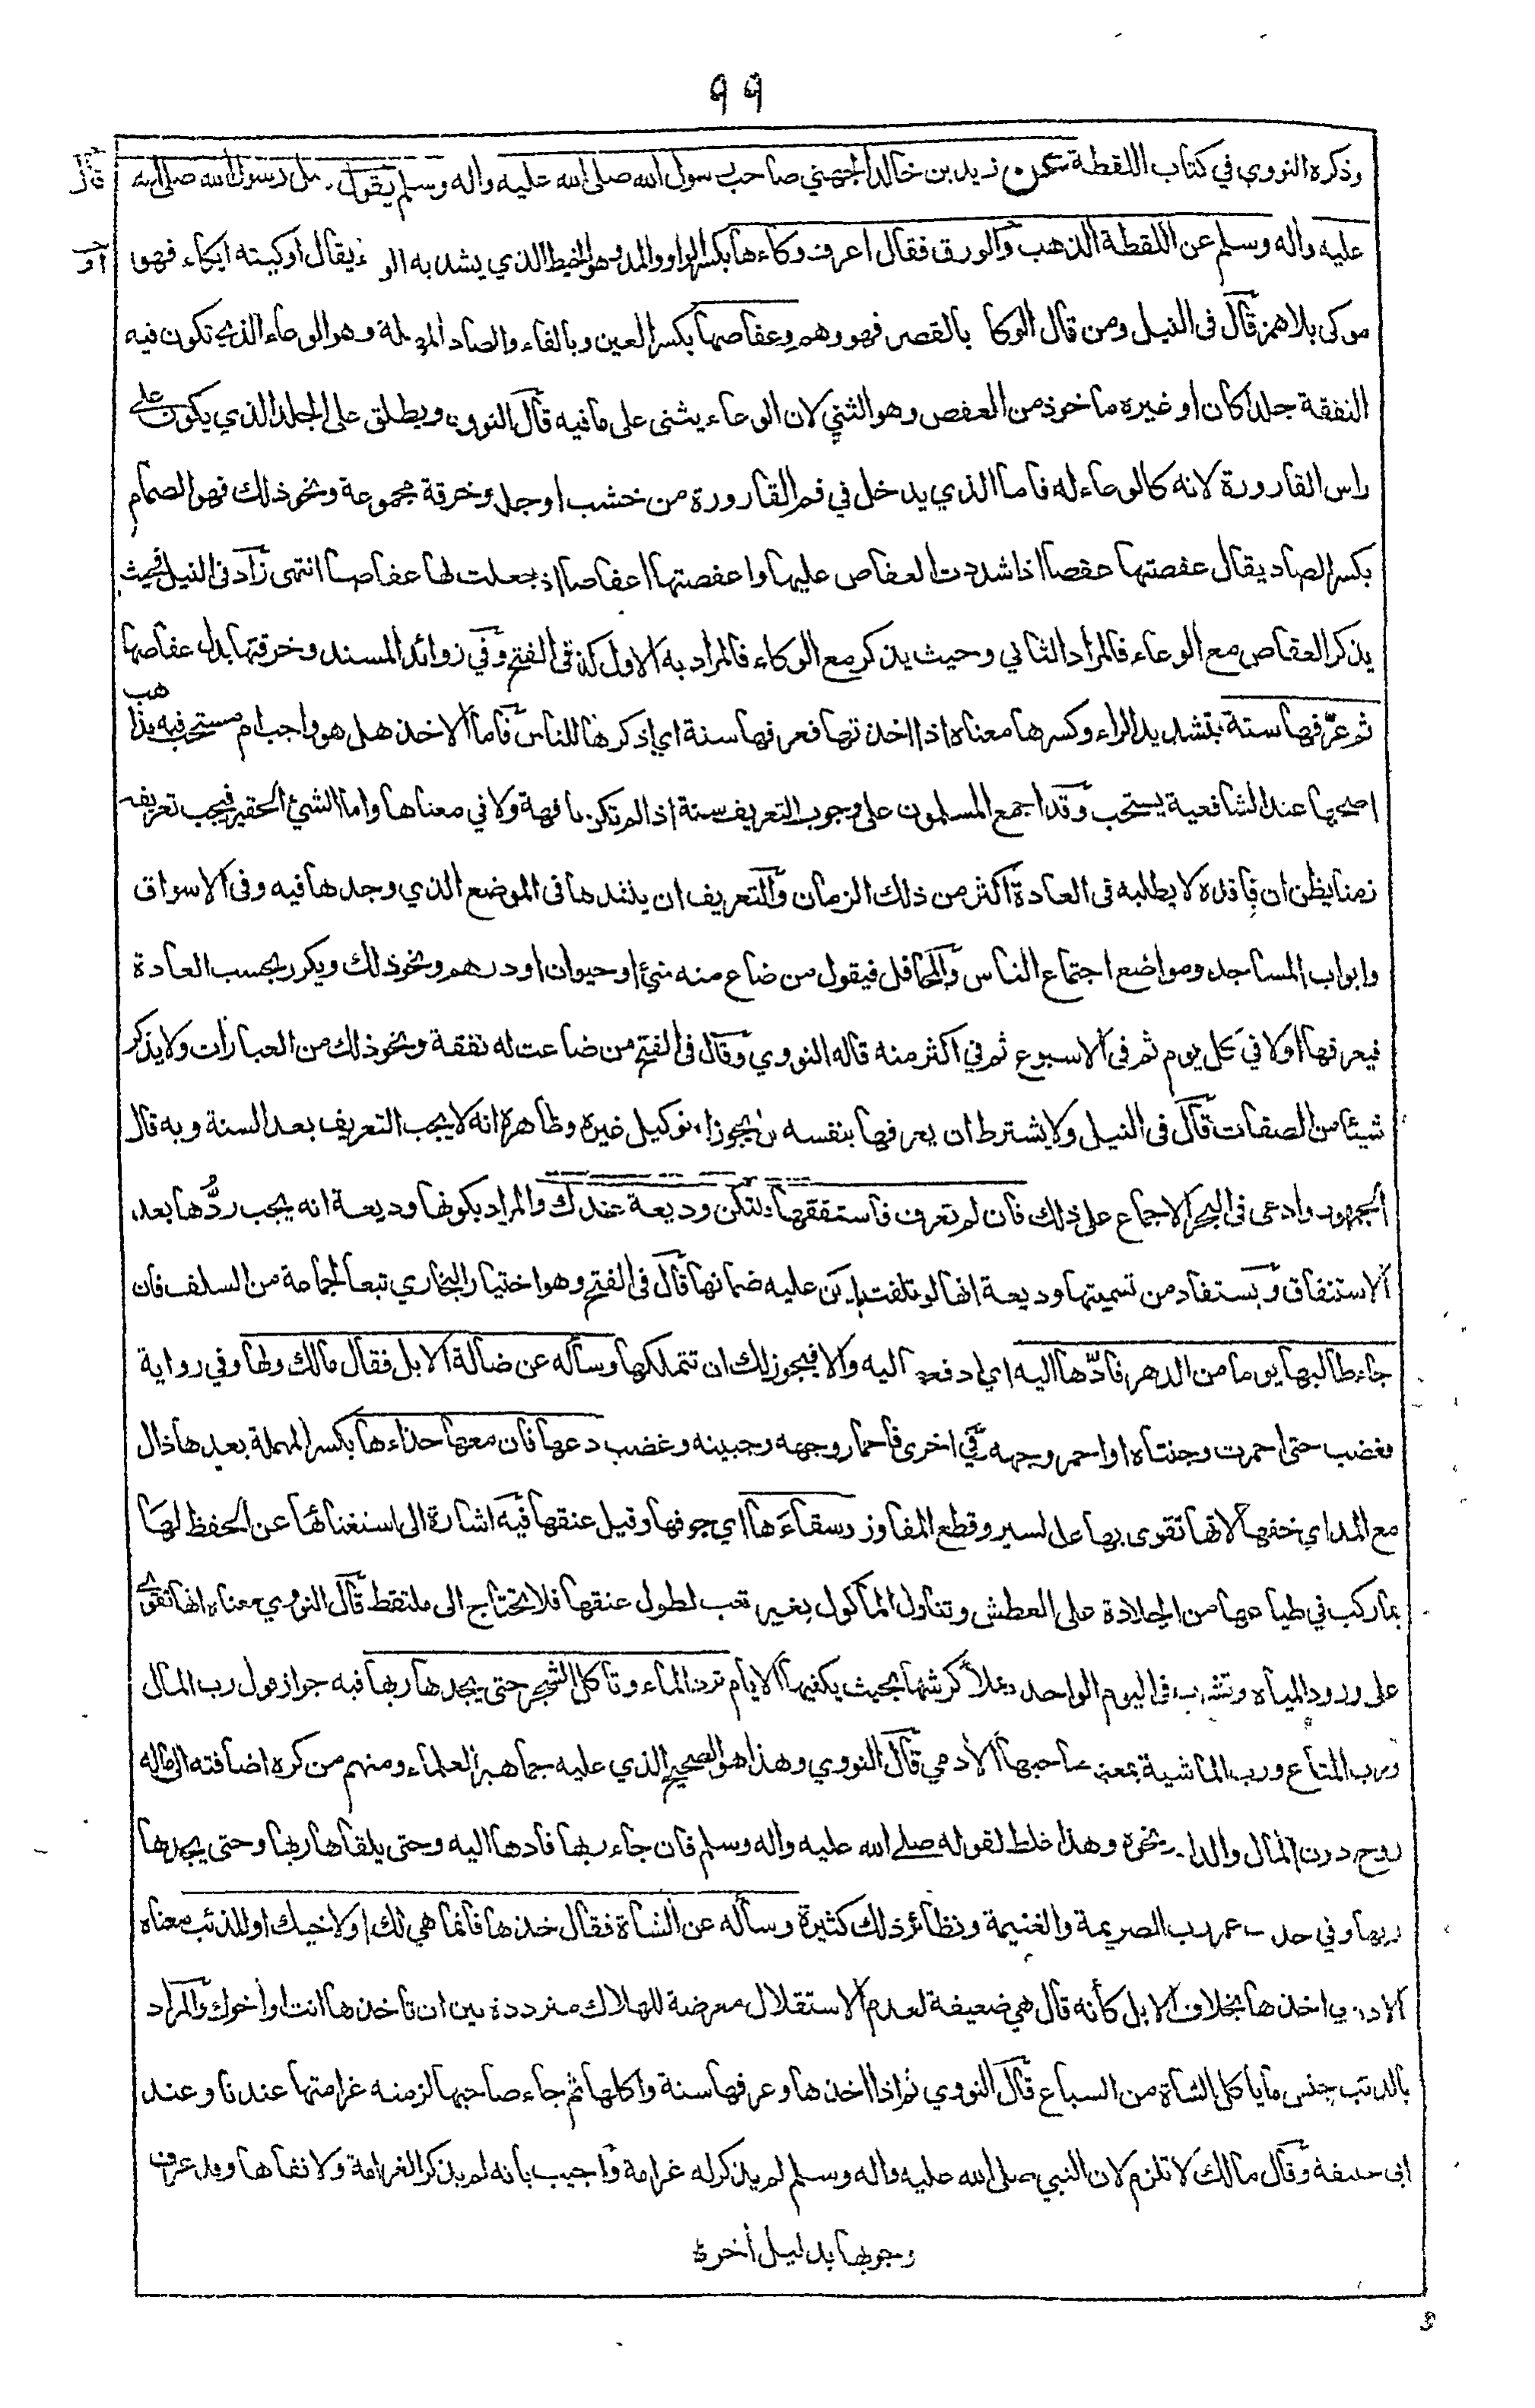 ٩٩
وذكره النووي في كتاب اللقطة عن زيد بن خالد الجهني صاحب رسول الله صلى الله عليه واله وسلم يقول سئل رسول الله صلى الله
قال
عليه واله وسلم عن اللقطة الذهب والورق فقال اعرف وكاءها بكسر الواو والمد وهو الخيط الذي يشد به الو ء يقال اوكيته ايكاء فهو
او
موكى بلا همز قال فى النيل ومن قال الوكا بالقصر فهو وهم وعفاصها بكسر العين وبالفاء والصاد المهملة وهو الوعاء الذي تكون فيه
النفقة جلدا كان او غيره ماخوذ من العفص وهو الثني لان الوعاء يثنى على ما فيه قال النووي ويطلق على الجلد الذي يكون على
راس القارورة لانه كالوعاء له فاما الذي يدخل في فم القارورة من خشب او جلد وخرقة مجموعة ونحو ذلك فهو الصمام
بكسر الصاد يقال عفصتها عفصا اذا شددت العفاص عليها واعفصتها اعفاصا اذ جعلت لها عفاصا انتهى زاد فى النيل فحيث
يذكر العفاص مع الوعاء فالمراد الثاني وحيث يذكر مع الوكاء فالمراد به الاول كذا فى الفتح وفي زوائد المسند وخرقتها بدل عفاصها
ثم عرّفها سنة بتشديد الراء وكسرها معناه اذا اخذتها فعرفها سنة اي اذكرها للناس فاما الاخذ هل هو واجب ام مستحب فيه مذا
هب
اصحها عند الشافعية يستحب وقد اجمع المسلمون على وجوب التعريف سنة اذا لم تكن تافهة ولا في معناها واما الشئ الحقير فيجب تعريفه
زمنا يظن ان فاقده لا يطلبه فى العادة اكثر من ذلك الزمان والتعريف ان ينشدها فى الموضع الذي وجدها فيه وفى الاسواق
وابواب المساجد ومواضع اجتماع الناس والمحافل فيقول من ضاع منه شئ او حيوان او درهم ونحو ذلك ويكرر بحسب العادة
فيعرفها اولا في كل يوم ثم فى الاسبوع ثم في اكثر منه قاله النووي وقال فى الفتح من ضاعت له نفقة ونحو ذلك من العبارات ولا يذكر
شيئا من الصفات قال فى النيل ولا يشترط ان يعرفها بنفسه بل يجوز له توكيل غيره وظاهره انه لا يجب التعريف بعد السنة وبه قال
الجمهور وادعى فى البحر الاجماع على ذلك فان لم تعرف فاستنفقها ولتكن وديعة عندك والمراد بكونها وديعة انه يجب ردُّها بعد
الاستنفاق ويستفاد من تسميتها وديعة انها لو تلفت لم يكن عليه ضمانها قال فى الفتح وهو اختيار البخاري تبعا لجماعة من السلف فان
جاء طالبها يوما من الدهر فادّها اليه اي ادفعها اليه والا فيجوز لك ان تتملكها وسأله عن ضالة الابل فقال مالك ولها وفي رواية
فغضب حتى احمرت وجنتاه او احمر وجهه وفي اخرى فاحمار وجهه وجبينه وغضب دعها فان معها حذاءها بكسر المهملة بعدها ذال
مع المد اي خفها لانها تقوى بها على السير وقطع المفاوز وسقاءَها اي جوفها وقيل عنقها فيه اشارة الى استغنائها عن الحفظ لها
بما ركب في طباعها من الجلادة على العطش وتناول الماكول بغير تعب لطول عنقها فلا يحتاج الى ملتقط قال النووي معناه انها تقوى
على ورود المياه وتشرب فى اليوم الواحد وتملأ كرشها بحيث يكفيها الايام ترد الماء وتاكل الشجر حتى يجدها ربها فيه جواز قول رب المال
ورب المتاع ورب الماشية بمعنى صاحبها الآدمي قال النووي وهذا هو الصحيح الذي عليه جماهير العلماء ومنهم من كره اضافته الى ماله
روح دون المال والدار ونحوه وهذا غلط لقوله صلى الله عليه واله وسلم فان جاء ربها فادها اليه وحتى يلقاها ربها وحتى يجدها
ربها وفي حديث عمر رب الصريمة والغنيمة ونظائر ذلك كثيرة وسأله عن الشاة فقال خذها فانما هي لك او لاخيك او للذئب معناه
الاذن في اخذها بخلاف الابل كأنه قال هي ضعيفة لعدم الاستقلال معرضة للهلاك مترددة بين ان تاخذها انت او اخوك والمراد
بالذئب جنس ما ياكل الشاة من السباع قال النووي ثم اذا اخذها وعرفها سنة واكلها ثم جاء صاحبها لزمته غرامتها عندنا وعند
ابى حنيفة وقال مالك لا تلزم لان النبي صلى الله عليه واله وسلم لم يذكر له غرامة واجيب بانه لم يذكر الغرامة ولا نفاها وقد عرف
وجوبها بدليل آخر